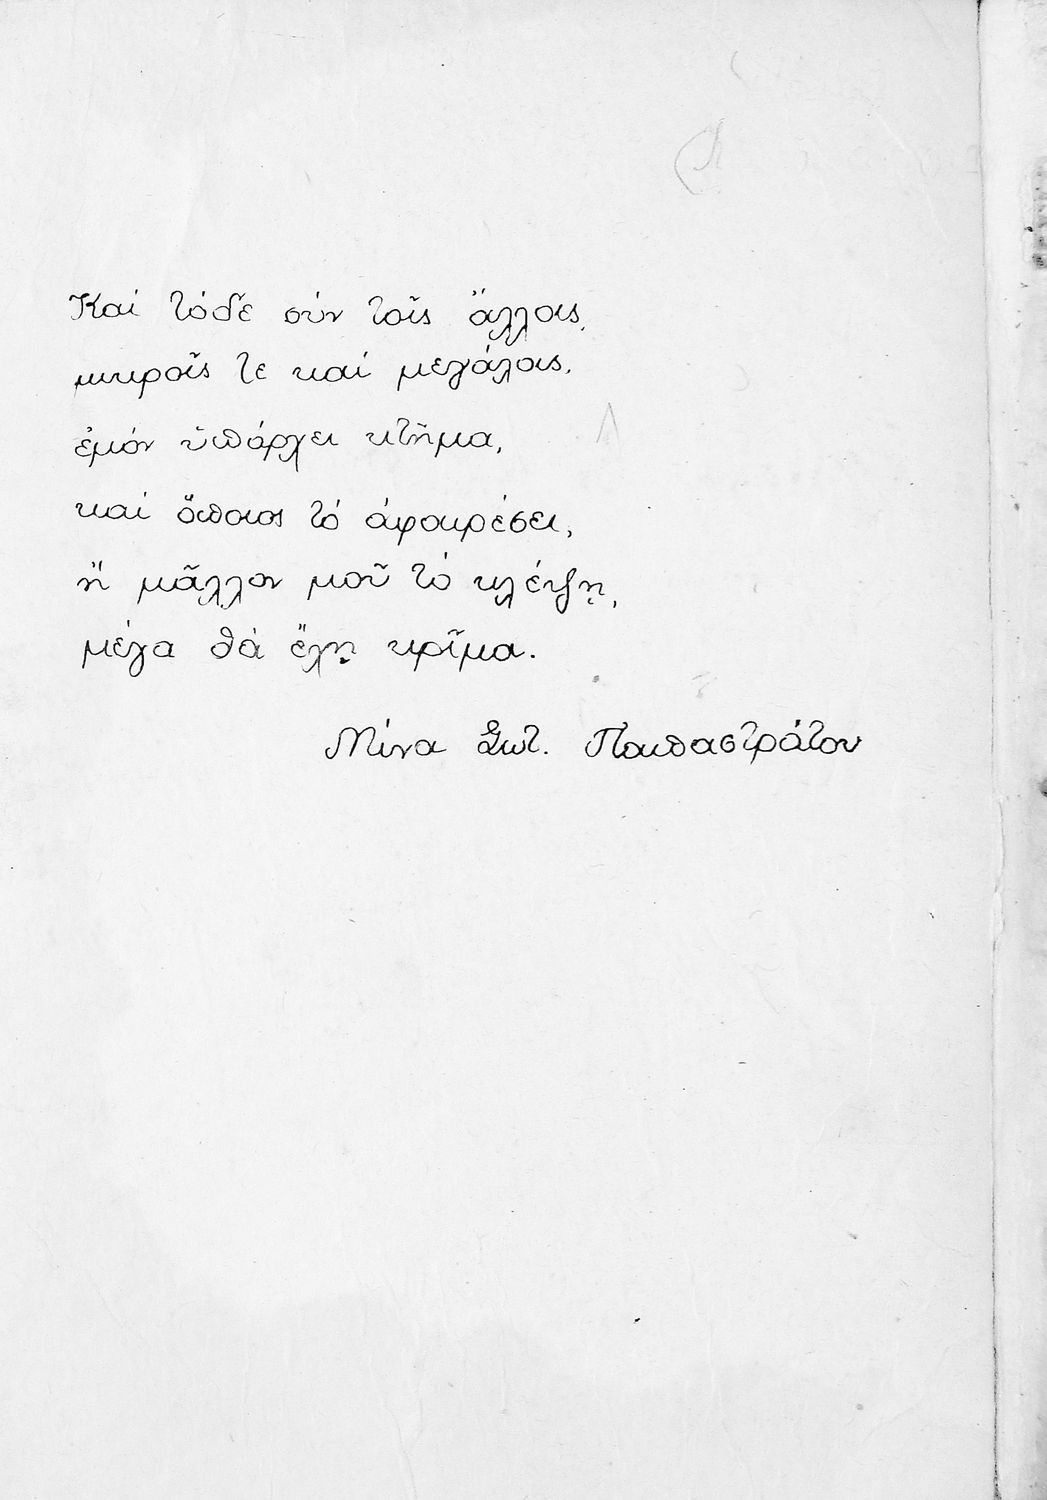 Καί τόδε σύν τοῖς ἄλλοις,
μικροῖς τε καί μεγάλοις,
ἐμόν ὑπάρχει κτῆμα,
καί ὅποιος τό ἀφαιρέσει,
ἤ μᾶλλον μοῦ τό κλέψῃ,
μέγα θά ἔχῃ κρῖμα.
Μίνα Σωτ. Παπαστράτου